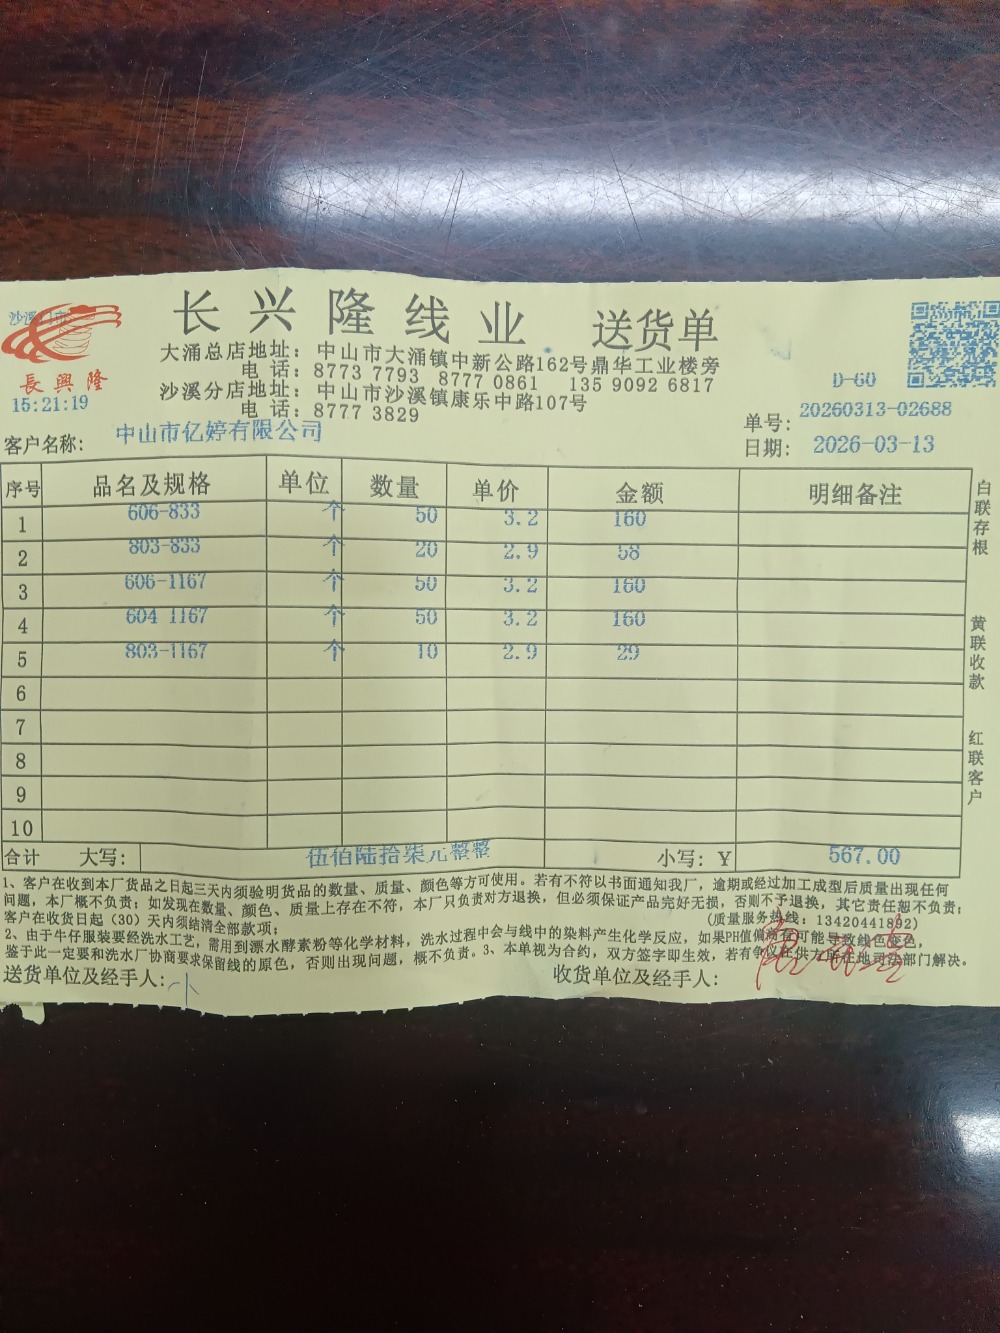 长兴隆线业 送货单
沙溪门市
長興隆
15:21:19
大涌总店地址：中山市大涌镇中新公路162号鼎华工业楼旁
电 话：8773 7793 8777 0861 135 9092 6817
沙溪分店地址：中山市沙溪镇康乐中路107号
电 话：8777 3829
D-60
单号：20260313-02688
客户名称：中山市亿婷有限公司
日期：2026-03-13
序号 品名及规格 单位 数量 单价 金额 明细备注
1 606-833 个 50 3.2 160
2 803-833 个 20 2.9 58
3 606-1167 个 50 3.2 160
4 604 1167 个 50 3.2 160
5 803-1167 个 10 2.9 29
6
7
8
9
10
合计 大写：伍佰陆拾柒元整整 小写：￥567.00
白联存根 黄联收款 红联客户
1、客户在收到本厂货品之日起三天内须验明货品的数量、质量、颜色等方可使用。若有不符以书面通知我厂，逾期或经过加工成型后质量出现任何
问题，本厂概不负责；如发现在数量、颜色、质量上存在不符，本厂只负责对方退换，但必须保证产品完好无损，否则不予退换，其它责任恕不负责；
客户在收货日起（30）天内须结清全部款项； (质量服务热线：13420441892)
2、由于牛仔服装要经洗水工艺，需用到漂水酵素粉等化学材料，洗水过程中会与线中的染料产生化学反应，如果PH值偏酒有可能导致线色变色，
鉴于此一定要和洗水厂协商要求保留线的原色，否则出现问题，概不负责。3、本单视为合约，双方签字即生效，若有争议在供方所在地司法部门解决。
送货单位及经手人： 收货单位及经手人：